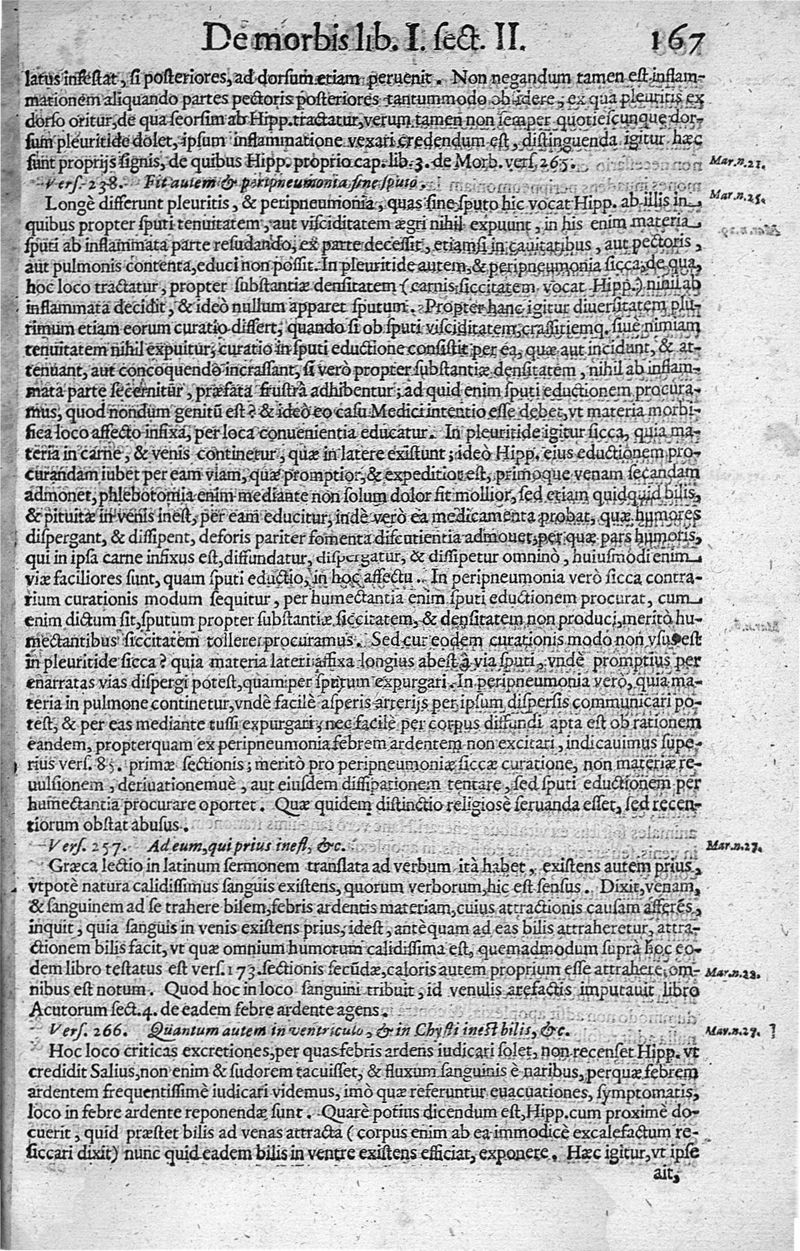 De morbis lib. I. sect. II. 167
latus infestat, si posteriores, ad dorsum etiam peruenit. Non negandum tamen est inflam-
mationem aliquando partes pectoris posteriores tantummodo obsidere, ex qua pleuritis ex
dorso oritur, de qua seorsim ab Hipp. tractatur, verum tamen non semper quotiescunque dor-
sum pleuritide dolet, ipsum inflammatione vexari credendum est, distinguenda igitur hæc
sunt proprijs signis, de quibus Hipp. proprio cap. lib. 3. de Morb. vers. 265. Mar. n. 21.
Vers. 238. Fit autem & peripneumonia sine sputo.
Longè differunt pleuritis, & peripneumonia, quas sine sputo hic vocat Hipp. ab illis in Mar. n. 25.
quibus propter sputi tenuitatem, aut visciditatem ægri nihil expuunt, in his enim materia
sputi ab inflammata parte resudando, ex parte decessit, etiamsi in cauitatibus, aut pectoris,
aut pulmonis contenta, educi non possit. In pleuritide autem, & peripneumonia sicca, de qua,
hoc loco tractatur, propter substantiæ densitatem (carnis siccitatem vocat Hipp.) nihil ab
inflammata decidit, & ideò nullum apparet sputum. Propter hanc igitur diuersitatem plu-
rimum etiam eorum curatio differt; quando si ob sputi visciditatem, crassitiemq. siue nimiam
tenuitatem nihil expuitur, curatio in sputi eductione consistit per ea, quæ aut incidunt, & at-
tenuant, aut concoquendo incrassant, si verò propter substantiæ densitatem, nihil ab inflam-
mata parte secernitur, præfata frustrà adhibentur; ad quid enim sputi eductionem procura-
mus, quod nondum genitũ est? & ideò eo casu Medici intentio esse debet, vt materia morbi-
fica loco affecto infixa, per loca conuenientia educatur. In pleuritide igitur sicca, quia ma-
teria in carne, & venis continetur, quæ in latere existunt; ideò Hipp. eius eductionem pro-
curandam iubet per eam viam, quæ promptior, & expeditior est, primoque venam secandam
admonet, phlebotomia enim mediante non solum dolor fit mollior, sed etiam quidquid bilis,
& pituitæ in venis inest, per eam educitur, indè verò ea medicamenta probat, quæ humores
dispergant, & dissipent, deforis pariter fomenta discutientia admouet, per quæ pars humoris,
qui in ipsa carne infixus est, diffundatur, dispergatur, & dissipetur omninò, huiusmodi enim
viæ faciliores sunt, quam sputi eductio, in hoc affectu. In peripneumonia verò sicca contra-
rium curationis modum sequitur, per humectantia enim sputi eductionem procurat, cum
enim dictum sit, sputum propter substantiæ siccitatem, & densitatem non produci, meritò hu-
mectantibus siccitatem tollere procuramus. Sed cur eodem curationis modo non vsus est
in pleuritide sicca? quia materia lateri affixa longius abest à via sputi, vndè promptius per
enarratas vias dispergi potest, quam per sputum expurgari. In peripneumonia verò, quia ma-
teria in pulmone continetur, vndè facilè asperis arterijs per ipsum dispersis communicari po-
test, & per eas mediante tussi expurgari; nec facilè per corpus diffundi apta est ob rationem
eandem, propterquam ex peripneumonia febrem ardentem non excitari, indicauimus supe-
rius vers. 85. primæ sectionis; meritò pro peripneumoniæ siccæ curatione, non materiæ re-
uulsionem, deriuationemuè, aut eiusdem dissipationem tentare, sed sputi eductionem per
humectantia procurare oportet. Quæ quidem distinctio religiosè seruanda esset, sed recen-
tiorum obstat abusus.
Vers. 257. Ad eum, qui prius inest, &c. Mar. n. 27.
Græca lectio in latinum sermonem translata ad verbum ità habet, existens autem prius,
vtpotè natura calidissimus sanguis existens, quorum verborum, hic est sensus. Dixit, venam,
& sanguinem ad se trahere bilem, febris ardentis materiam, cuius attractionis causam afferẽs,
inquit, quia sanguis in venis existens prius, idest, antèquam ad eas bilis attraheretur, attra-
ctionem bilis facit, vt quæ omnium humorum calidissima est, quemadmodum suprà hoc eo-
dem libro testatus est vers. 173. sectionis secũdæ, caloris autem proprium esse attrahere, om- Mar. n. 22.
nibus est notum. Quod hoc in loco sanguini tribuit, id venulis arefactis imputauit libro
Acutorum sect. 4. de eadem febre ardente agens.
Vers. 266. Quantum autem in ventriculo, & in Chysti inest bilis, &c. Mar. n. 27.
Hoc loco criticas excretiones, per quas febris ardens iudicari solet, non recenset Hipp. vt
credidit Salius, non enim & sudorem tacuisset, & fluxum sanguinis è naribus, per quæ febrem
ardentem frequentissimè iudicari videmus, imò quæ referuntur euacuationes, symptomatis,
loco in febre ardente reponendæ sunt. Quarè potius dicendum est, Hipp. cum proximè do-
cuerit, quid præstet bilis ad venas attracta (corpus enim ab ea immodicè excalefactum re-
siccari dixit) nunc quid eadem bilis in ventre existens efficiat, exponere. Hæc igitur, vt ipse
ait,